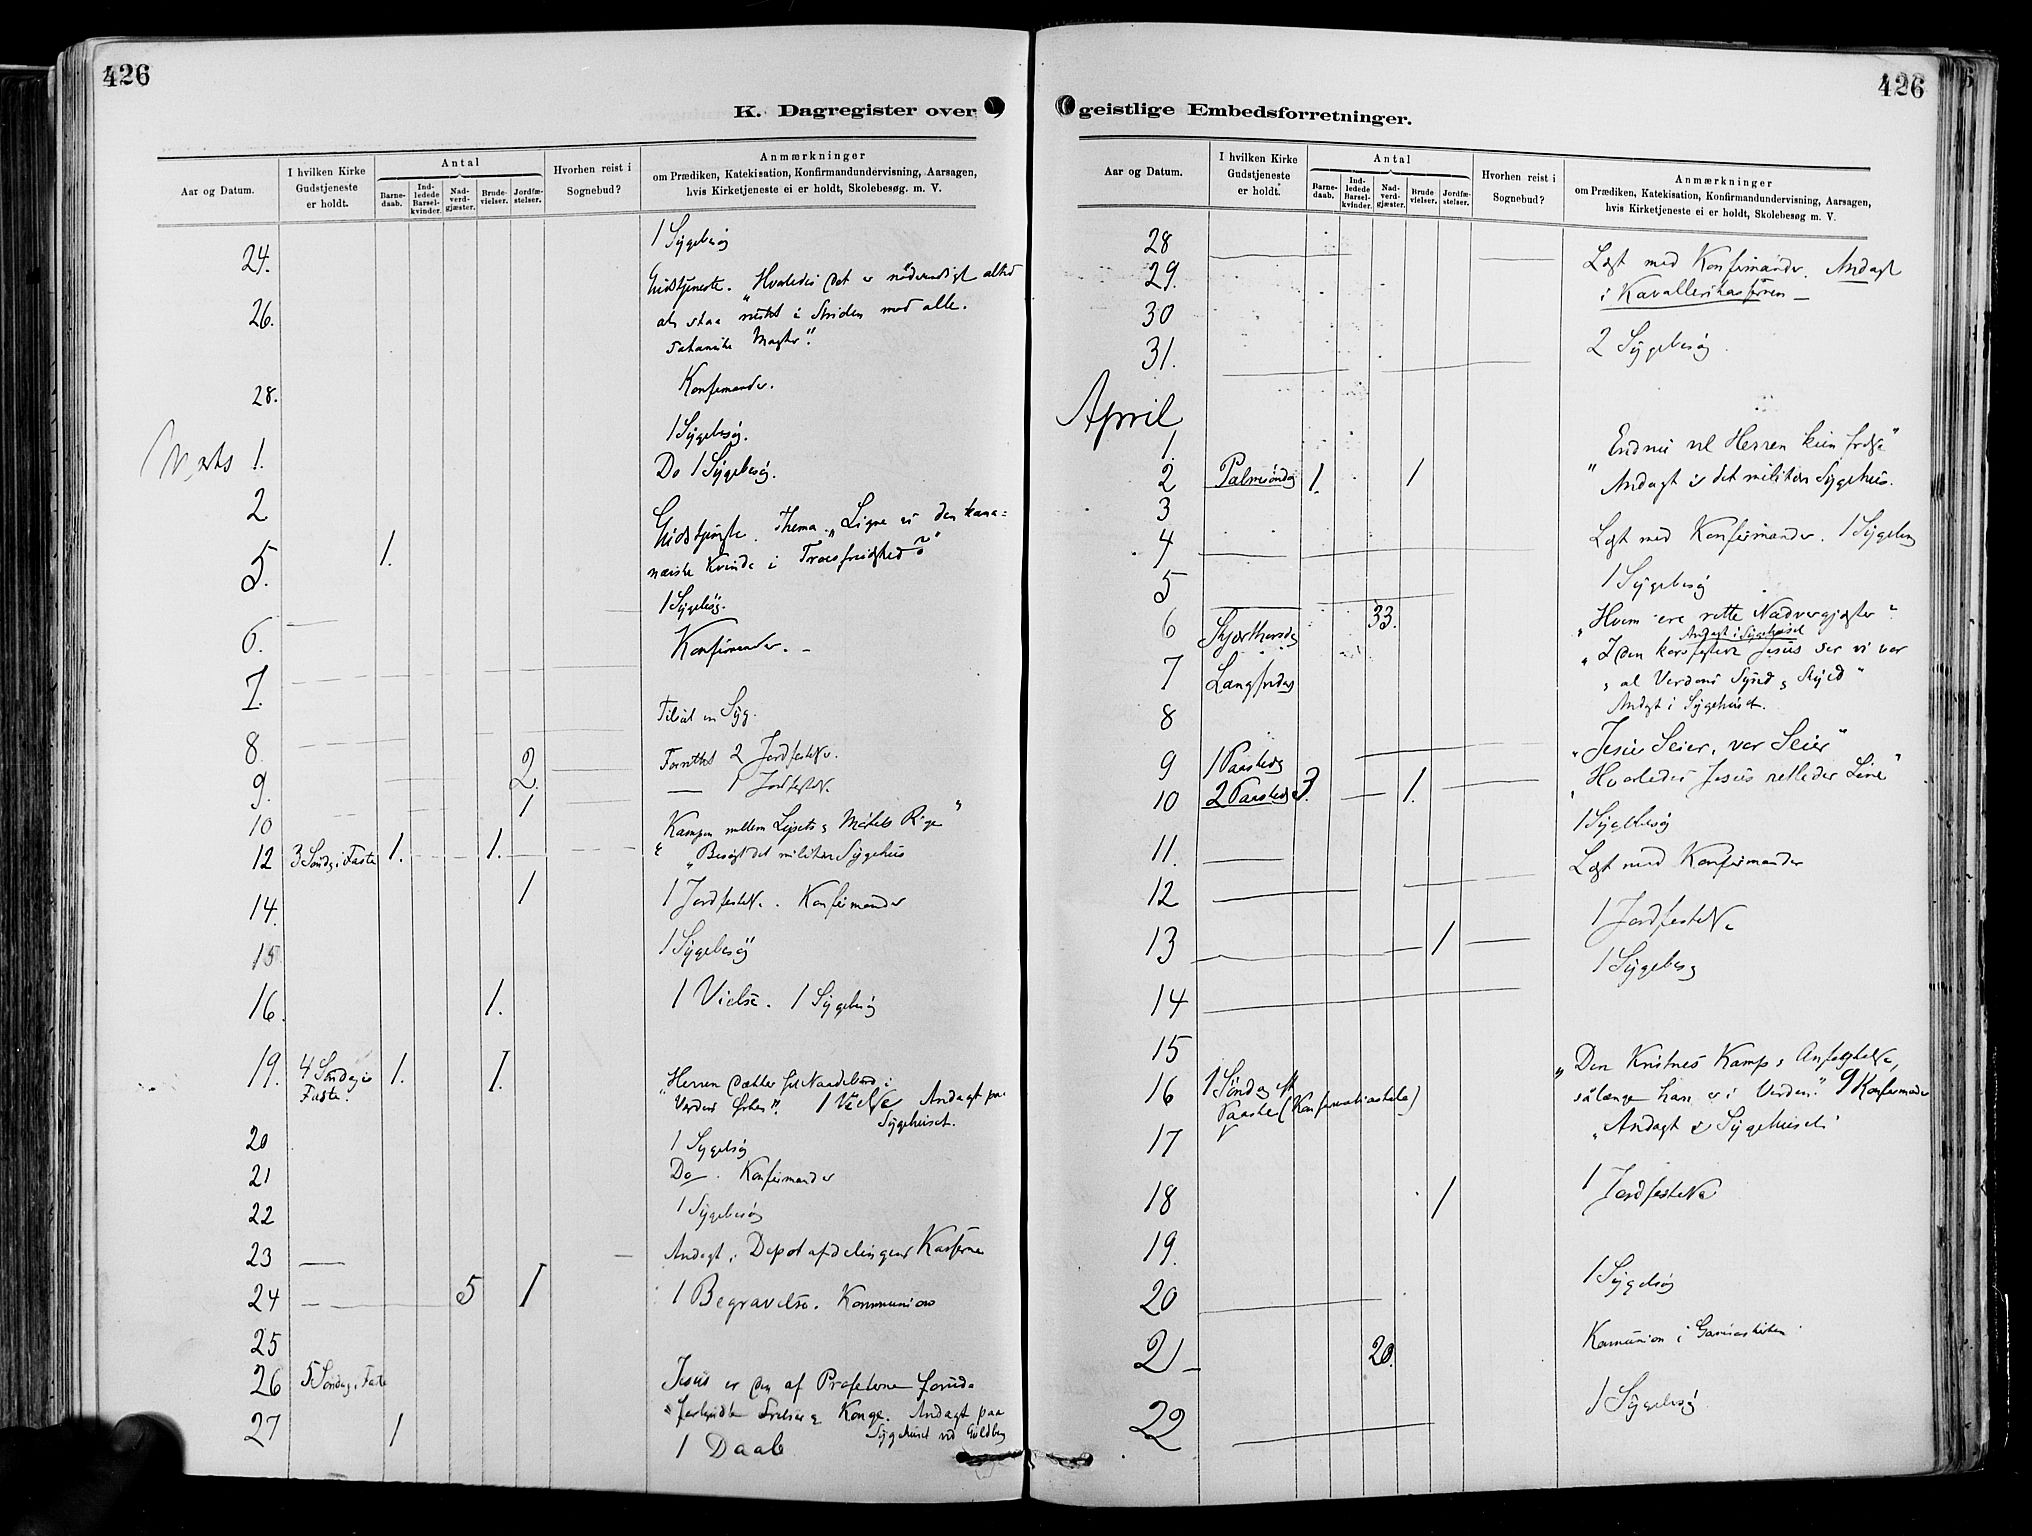 426
K. Dagregister over
Aar og Datum.
I hvilken Kirke
Gudstjeneste
er holdt.
Antal
Barne-
daab.
Ind-
ledede
Barsel-
kvinder.
Nad-
verd-
gjæster.
Brude-
vielser.
Jordfæ-
stelser.
Hvorhen reist i
Sognebud?
Anmærkninger
om Prædiken, Katekisation, Konfirmandundervisning, Aarsagen,
hvis Kirketjeneste ei er holdt, Skolebesøg. m. V.
24. 1 Sygebesøg
26. Gudstjeneste. "Hvorledes det er nødvendigt altid
at staa i Striden mod alle
sataniske Magter."
28. Konfirmander.
Marts 1. 1 Sygebesøg.
2 Do 1 Sygebesøg.
5. 1. Thema. "Ligne vi den kana=
næiske Kvinde i Troesfrimodighed?"
6. 1 Sygebesøg.
7. Konfirmander. –
8. Syg.
9. 2. 2 Jordfestelser.
10 1 1 Jordfestelse.
12 3 Søndag i Faste 1. 1. Kampen mellem Lysets og Mørkets Rige"
"Besøgt det militære Sygehus
14. 1 1 Jordfestelse. Konfirmander
15 1 Sygebesøg
16. 1. 1 Vielse. 1 Sygebesøg
19. 4 Søndag i
Faste. 1. 1. "Herren dækker sit Naadebord i
Verdens Ørken". 1 Vielse Andagt paa
Sygehuset.
20 1 Sygebesøg
21 Do. Konfirmander
22 1 Sygebesøg
23 Andagt i Depotafdelingens Kaserne
24 5 1 1 Begravelse. Kommunion
25
26 5 Søndag i Faste Jesus er den af Profeterne forud
forkyndte Frelser og Konge. Andagt paa
Sygehuset ved Guldberg
27 1 1 Daab
426
geistlige Embedsforretninger.
Aar og Datum.
I hvilken Kirke
Gudstjeneste
er holdt.
Antal
Barne-
daab.
Ind-
ledede
Barsel-
kvinder.
Nad-
verd-
gjæster.
Brude
vielser.
Jordfæ-
stelser.
Hvorhen reist i
Sognebud?
Anmærkninger
om Prædiken, Katekisation, Konfirmandundervisning, Aarsagen,
hvis Kirketjeneste ei er holdt, Skolebesøg m. V.
28 Læst med Konfirmander. Andagt
29. i Kavallerikasernen –
30
31. 2 Sygebesøg.
April
1.
2 Palmesøndag 1. 1 "Endnu vil Herren"
Andagt i det militære Sygehus.
3
4 Læst med Konfirmander. 1 Sygebesøg
5 1 Sygebesøg
6 Skjærthorsdag 33. "Hvem ere rette Nadvergjæster"
Andagt i Sygehuset
7 Langfredag "I den korsfestede Jesus ser vi vor
og al Verdens Synd og Skyld"
8 Andagt i Sygehuset.
9 1 Paaskedag "Jesu Seier, vor Seier"
10 2 Paaskedag 3. 1. "Hvorledes Jesus"
11. 1 Sygebesøg
12 Læst med Konfirmander
13 1 1 Jordfestelse
14 1 Sygebesøg
15
16 1 Søndag eft
Paaske (Konfirmationsdele) "Den Kristnes Kamp og Anfægtelse,
sålænge han er i Verden". 9 Konfirmander
17 "Andagt i Sygehuset"
18 1 1 Jordfestelse
19.
20 1 Sygebesøg
21 20. Kommunion i Garnisonskirken
22 1 Sygebesøg.